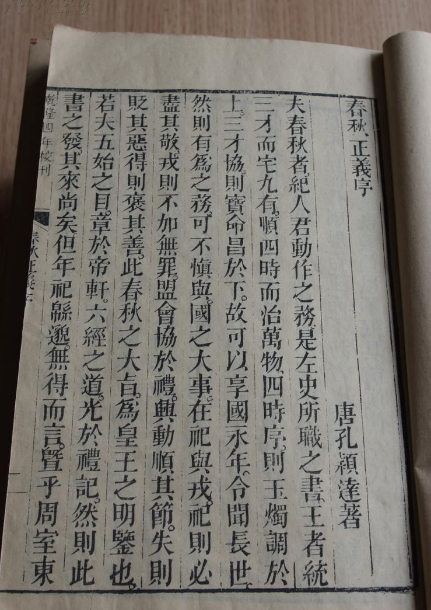 春秋正義序
唐孔穎達著
夫春秋者紀人君動作之務是左史所職之書王者統
三才而宅九有順四時而治萬物四時序則玉燭調於
上三才協則寶命昌於下故可以享國永年令聞長世
然則有為之務可不慎與國之大事在祀與戎祀則必
盡其敬戎則不加無罪盟會協於禮興動順其節失則
貶其惡得則褒其善此春秋之大旨為皇王之明鑒也
若夫五始之目章於帝軒六經之道光於禮記然則此
書之發其來尚矣但年祀緜邈無得而言曁乎周室東
乾隆四年校刊
春秋正義序